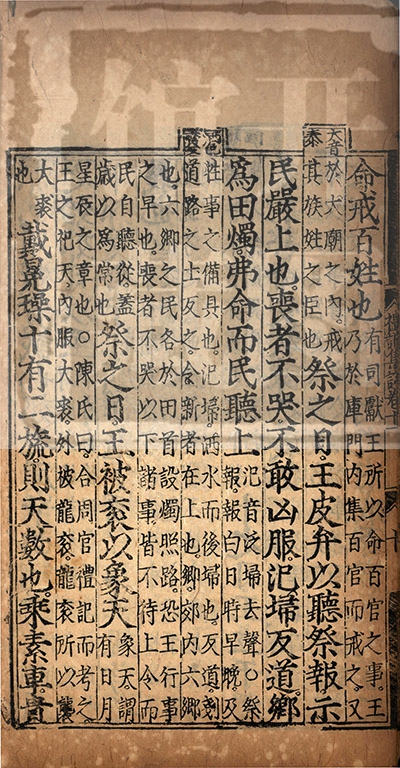 命戒百姓也
有司獻王所以命百官之事。王
乃於庫門內集百官而戒之。又
大音
泰
於大廟之內。戒
其族姓之臣也
祭之日。王皮弁以聽祭報。示
民嚴上也。喪者不哭。不敢凶服。汜埽反道。鄉
爲田燭。弗命而民聽上
汜音泛埽去聲○祭
報。報白日時早晚。及
牲事之備具也。汜埽。洒水而後埽也。反道。剗
道路之土反之。令新者在上也。鄉。郊內六鄉
也。六鄉之民。各於田首設燭照路。恐王行事
之早也。喪者不哭以下諸事。皆不待上令而
民自聽從。蓋
歲以爲常也
祭之日。王被衮以象天
象天。謂
有日月
星辰之章也○陳氏曰。合周官禮記而考之。
王之祀天。內服大裘。外被龍衮。龍衮所以襲
大裘
也
戴冕璪十有二旒。則天數也。乘素車。貴